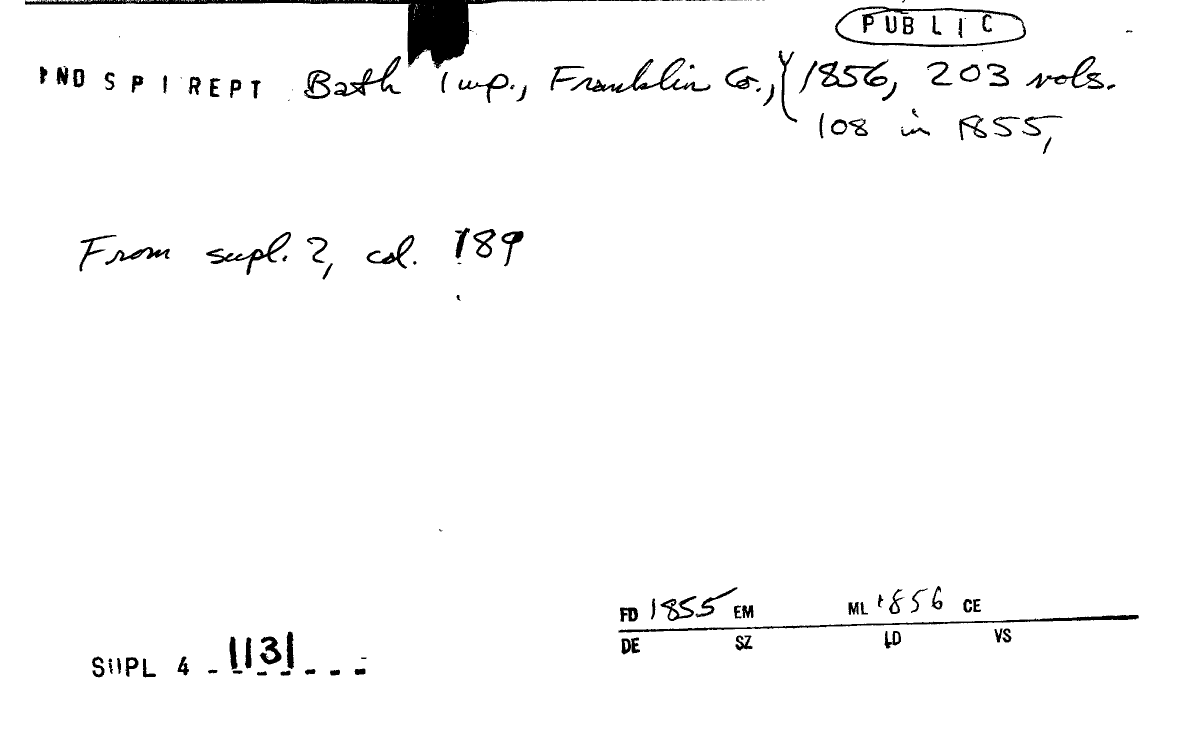 PUBLIC
IND SPI REPT Bath Twp., Franklin Co., { 1856, 203 vols.
108 in 1855,
From supl. 2, col. 189
FD 1855 EM ML 1856 CE
DE SZ LD VS
SUPL 4 - 1131 - - -